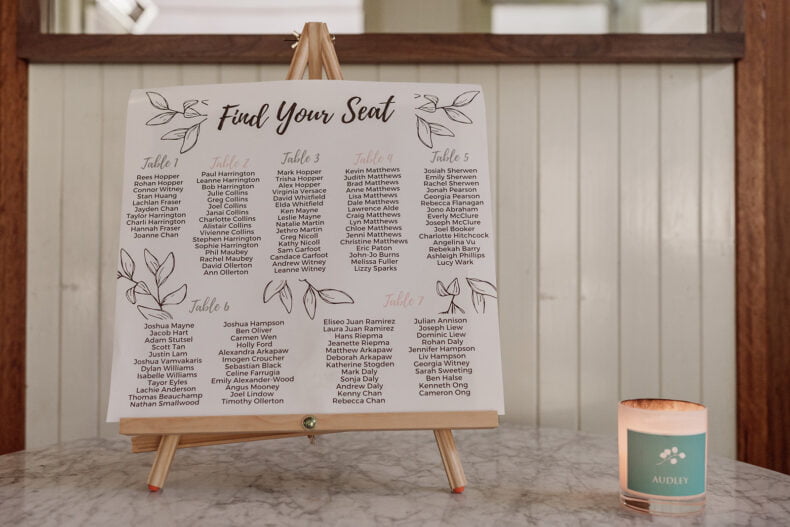 Find Your Seat
Table 1
Rees Hopper
Rohan Hopper
Connor Witney
Stan Huang
Lachlan Fraser
Jayden Chan
Taylor Harrington
Charli Harrington
Hannah Fraser
Joanne Chan
Table 2
Paul Harrington
Leanne Harrington
Bob Harrington
Julie Collins
Greg Collins
Joel Collins
Janai Collins
Charlotte Collins
Alistair Collins
Vivienne Collins
Stephen Harrington
Sophie Harrington
Phil Maubey
Rachel Maubey
David Ollerton
Ann Ollerton
Table 3
Mark Hopper
Trisha Hopper
Alex Hopper
Virginia Versace
David Whitfield
Elda Whitfield
Ken Mayne
Leslie Mayne
Natalie Martin
Jethro Martin
Greg Nicoll
Kathy Nicoll
Sam Garfoot
Candace Garfoot
Andrew Witney
Leanne Witney
Table 4
Kevin Matthews
Judith Matthews
Brad Matthews
Anne Matthews
Lisa Matthews
Dale Matthews
Lawrence Alde
Craig Matthews
Lyn Matthews
Chloe Matthews
Jenni Matthews
Christine Matthews
Eric Paton
John-Jo Burns
Melissa Fuller
Lizzy Sparks
Table 5
Josiah Sherwen
Emily Sherwen
Rachel Sherwen
Jonah Pearson
Georgia Pearson
Rebecca Flanagan
Jono Abraham
Everly McClure
Joseph McClure
Joel Booker
Charlotte Hitchcock
Angelina Vu
Rebekah Barry
Ashleigh Phillips
Lucy Wark
Table 6
Joshua Mayne
Jacob Hart
Adam Stutsel
Scott Tan
Justin Lam
Joshua Vamvakaris
Dylan Williams
Isabelle Williams
Tayor Eyles
Lachie Anderson
Thomas Beauchamp
Nathan Smallwood
Joshua Hampson
Ben Oliver
Carmen Wen
Holly Ford
Alexandra Arkapaw
Imogen Croucher
Sebastian Black
Celine Farrugia
Emily Alexander-Wood
Angus Mooney
Joel Lindow
Timothy Ollerton
Table 7
Eliseo Juan Ramirez
Laura Juan Ramirez
Hans Riepma
Jeanette Riepma
Matthew Arkapaw
Deborah Arkapaw
Katherine Stogden
Mark Daly
Sonja Daly
Andrew Daly
Kenny Chan
Rebecca Chan
Julian Annison
Joseph Liew
Dominic Liew
Rohan Daly
Jennifer Hampson
Liv Hampson
Georgia Witney
Sarah Sweeting
Ben Halse
Kenneth Ong
Cameron Ong
AUDLEY